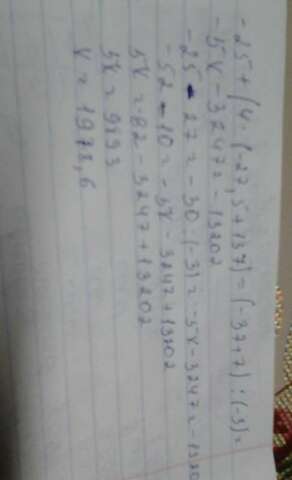 -25+(4·(-27,5+137)=(-37+7):(-3)=
-5x-3247=-13202
-25-27=-30:(-3)=-5x-3247=-1320
-52-10=-5x-3247+13202
5x=-82-3247+13202
5x=9893
x=1978,6